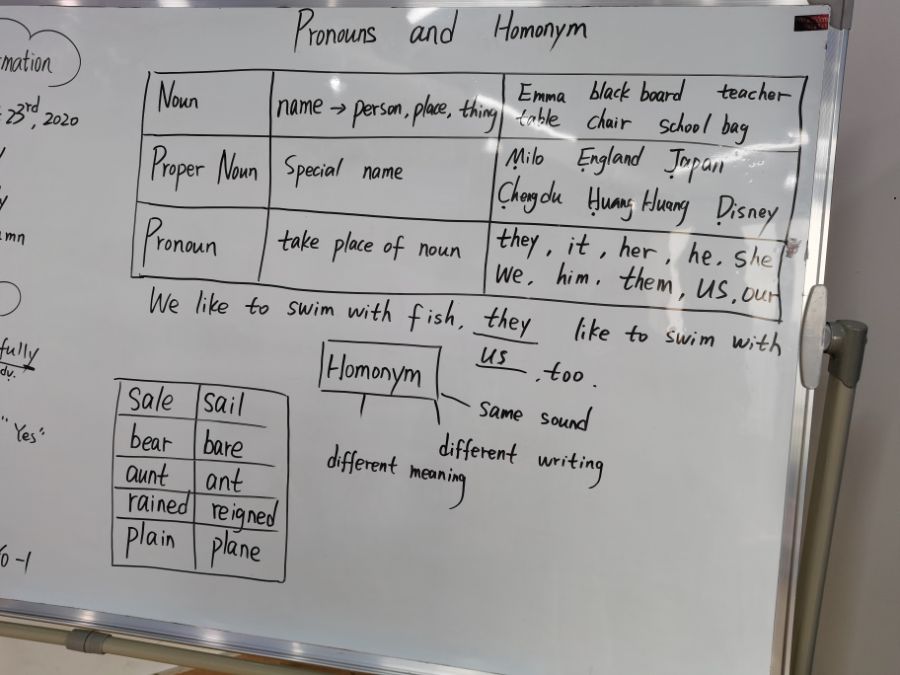 Pronouns and Homonym
mation
23rd, 2020
Noun
name → person, place, thing
Emma black board teacher
table chair school bag
Proper Noun
Special name
Milo England Japan
Chengdu Huang Huang Disney
Pronoun
take place of noun
they, it, her, he. she
We. him. them, us, our
We like to swim with fish. they like to swim with
us . too.
Homonym
same sound
different writing
different meaning
Sale sail
bear bare
aunt ant
rained reigned
plain plane
mn
fully
dv.
"Yes"
-1